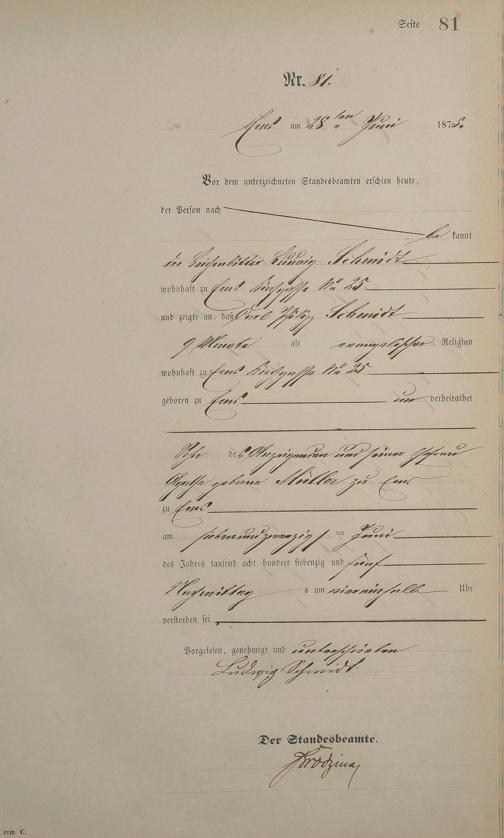 Seite 81
Nr. 81.
Ems am 28ten Juni 1875.
Vor dem unterzeichneten Standesbeamten erschien heute,
der Person nach
be kannt
Ludwig Schmidt
wohnhaft zu Ems No 25
und zeigte an, daß Carl Philipp Schmidt
9 Monate alt evangelischer Religion
wohnhaft zu Ems No 25
geboren zu Ems un verheirathet
Sohn des Anzeigenden und seiner Ehefrau
Agathe geborene Müller zu Ems
zu Ems
am siebenundzwanzig ten Juni
des Jahres tausend acht hundert siebenzig und fünf
Nachmittag s um viereinhalb Uhr
verstorben sei.
Vorgelesen, genehmigt und unterschrieben
Ludwig Schmidt.
Der Standesbeamte.
orm. C.